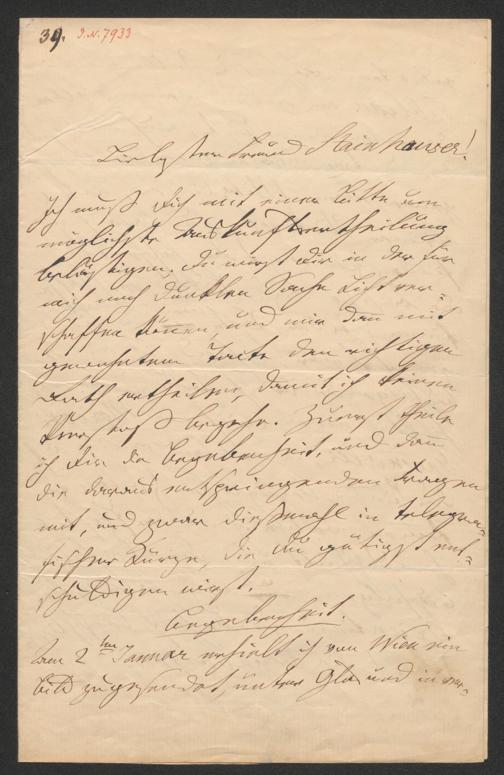 39. J.N. 7933
Liebster Freund Steinhauser!
Ich muß dich mit einer Bitte um
möglichste Auskunftsertheilung
belästigen. Du wirst dir in der für
mich noch dunklen Sache Licht ver¬
schaffen können, und mir dann mit
gewohntem Takte den richtigen
Rath ertheilen, damit ich keinen
Verstoß begehe. Zuerst theile
ich dir die Begebenheit, und dann
die daraus entspringenden Fragen
mit, und zwar dießmahl in telegra¬
fischer Kürze, die du gütigst ent¬
schuldigen wirst.
Begebenheit.
Am 2ten Januar erhielt ich von Wien ein
Bild zugesendet, unter Glas und in